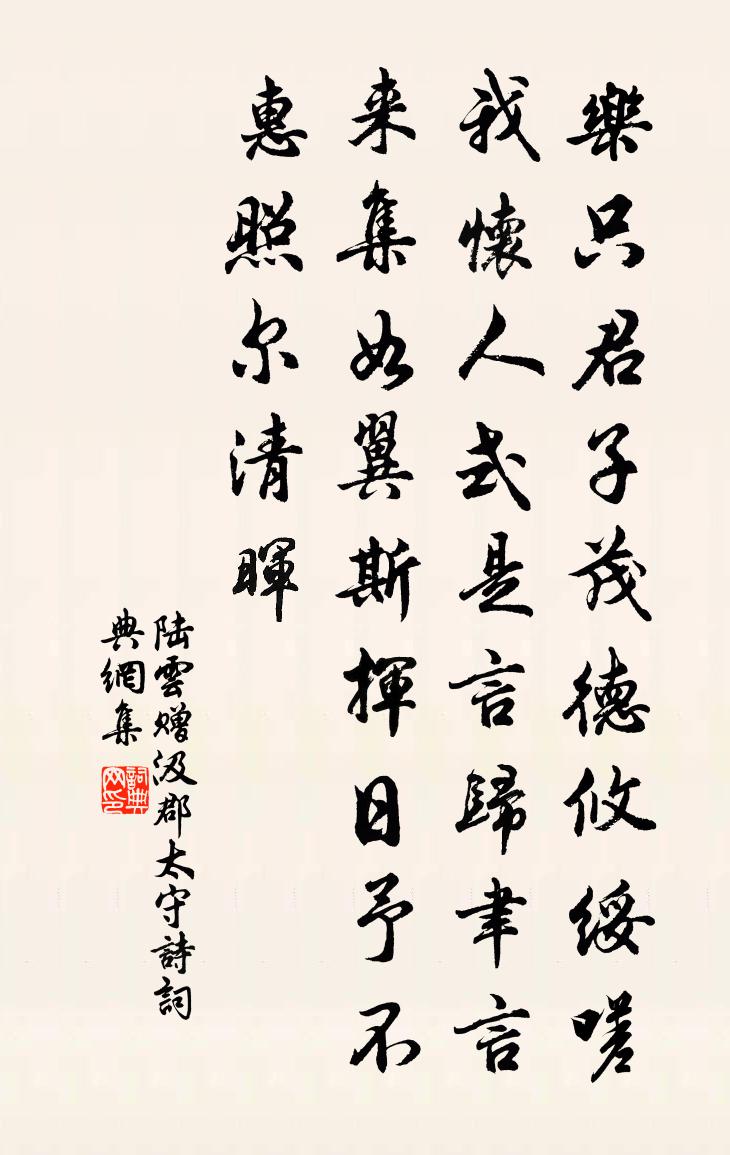 樂只君子茂德攸綏嗟
我懷人式是言歸聿言
来集如翼斯揮日予不
惠照尔清暉
陆雲赠汲郡太守詩詞
典網集
詞典
网印